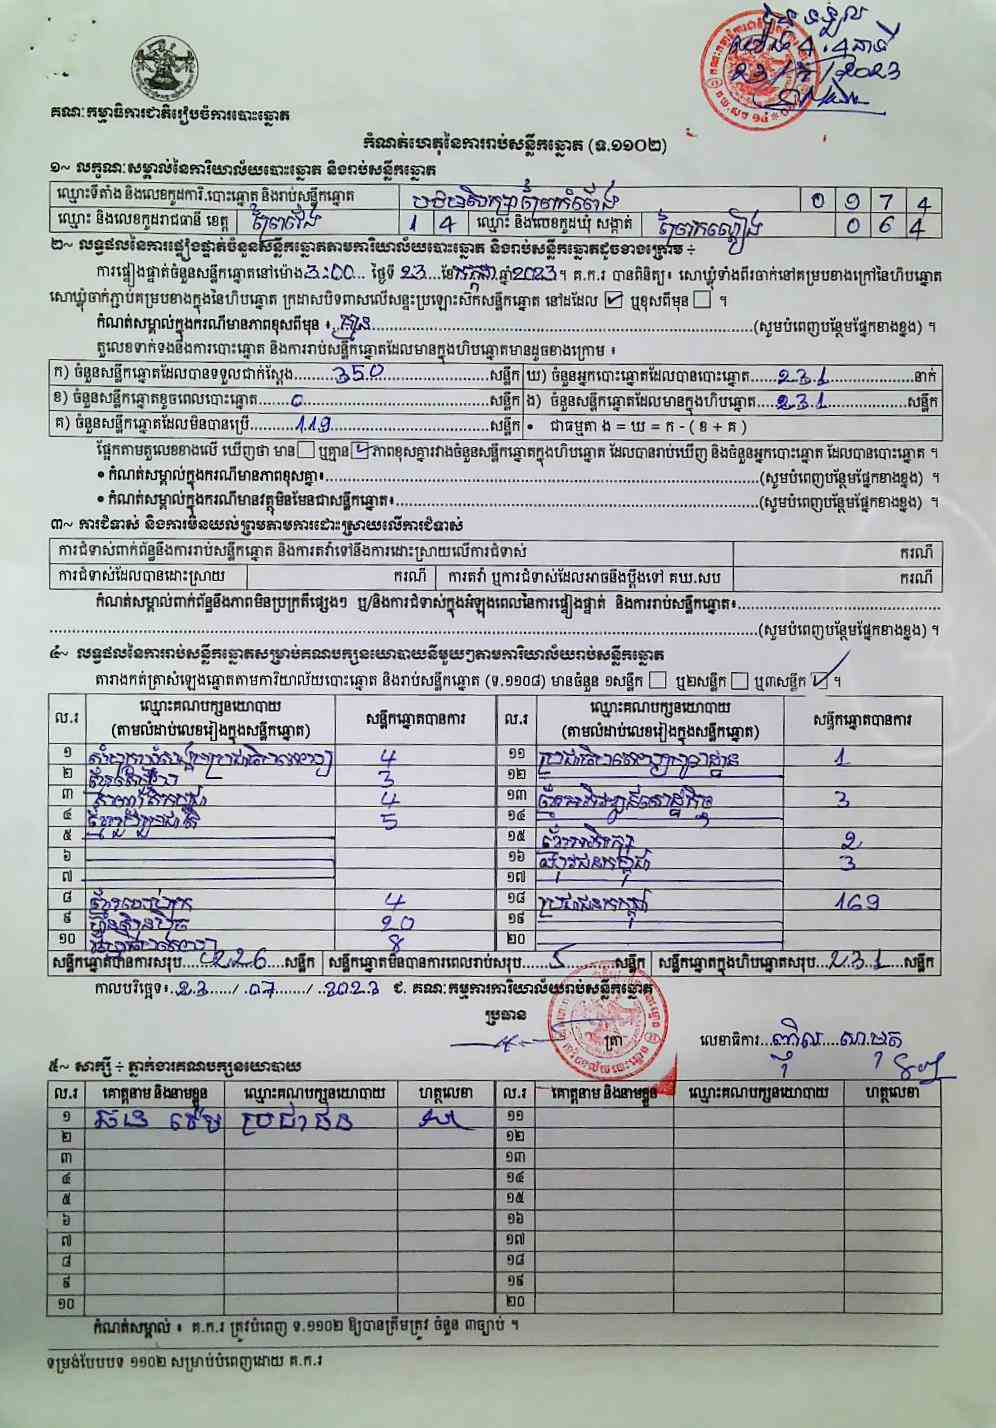 បានទទួល
ម៉ោង 4:4នាទី
23/7/2023
គណៈកម្មាធិការជាតិរៀបចំការបោះឆ្នោត
កំណត់ហេតុនៃការរាប់សន្លឹកឆ្នោត (ទ.១១០២)
១~ លក្ខណៈសម្គាល់នៃការិយាល័យបោះឆ្នោត និងរាប់សន្លឹកឆ្នោត
ឈ្មោះទីតាំង និងលេខកូដការិ.បោះឆ្នោត និងរាប់សន្លឹកឆ្នោត 0 9 7 4
ឈ្មោះ និងលេខកូដរាជធានី ខេត្ត ព្រៃវែង 1 4 ឈ្មោះ និងលេខកូដឃុំ សង្កាត់ 0 6 4
២~ លទ្ធផលនៃការផ្ទៀងផ្ទាត់ចំនួនសន្លឹកឆ្នោតតាមការិយាល័យបោះឆ្នោត និងរាប់សន្លឹកឆ្នោតដូចខាងក្រោម ÷
ការផ្ទៀងផ្ទាត់ចំនួនសន្លឹកឆ្នោតនៅម៉ោង 3:00 ថ្ងៃទី 23 ខែ កក្កដា ឆ្នាំ 2023 ។ គ.ក.រ បានពិនិត្យ៖ សោឃ្លុំទាំងពីរចាក់នៅគម្របខាងក្រៅនៃហិបឆ្នោត
សោឃ្លុំចាក់ភ្ជាប់គម្របខាងក្នុងនៃហិបឆ្នោត ក្រដាសបិទពាសលើសន្ទះប្រឡោះស៊កសន្លឹកឆ្នោត នៅដដែល ☑ ឬខុសពីមុន ☐ ។
កំណត់សម្គាល់ក្នុងករណីមានភាពខុសពីមុន ៖ គ្មាន (សូមបំពេញបន្ថែមផ្នែកខាងខ្នង) ។
តួលេខទាក់ទងនឹងការបោះឆ្នោត និងការរាប់សន្លឹកឆ្នោតដែលមានក្នុងហិបឆ្នោតមានដូចខាងក្រោម ៖
ក) ចំនួនសន្លឹកឆ្នោតដែលបានទទួលជាក់ស្តែង 350 សន្លឹក ឃ) ចំនួនអ្នកបោះឆ្នោតដែលបានបោះឆ្នោត 231 នាក់
ខ) ចំនួនសន្លឹកឆ្នោតខូចពេលបោះឆ្នោត 0 សន្លឹក ង) ចំនួនសន្លឹកឆ្នោតដែលមានក្នុងហិបឆ្នោត 231 សន្លឹក
គ) ចំនួនសន្លឹកឆ្នោតដែលមិនបានប្រើ 119 សន្លឹក • ជាធម្មតា ង = ឃ = ក - ( ខ + គ )
ផ្អែកតាមតួលេខខាងលើ ឃើញថា មាន ☐ ឬគ្មាន ☑ ភាពខុសគ្នារវាងចំនួនសន្លឹកឆ្នោតក្នុងហិបឆ្នោត ដែលបានរាប់ឃើញ និងចំនួនអ្នកបោះឆ្នោត ដែលបានបោះឆ្នោត ។
• កំណត់សម្គាល់ក្នុងករណីមានភាពខុសគ្នា៖ (សូមបំពេញបន្ថែមផ្នែកខាងខ្នង) ។
• កំណត់សម្គាល់ក្នុងករណីមានវត្ថុមិនមែនជាសន្លឹកឆ្នោត៖ (សូមបំពេញបន្ថែមផ្នែកខាងខ្នង) ។
៣~ ការជំទាស់ និងការមិនយល់ព្រមតាមការដោះស្រាយលើការជំទាស់
ការជំទាស់ពាក់ព័ន្ធនឹងការរាប់សន្លឹកឆ្នោត និងការតវ៉ាទៅនឹងការដោះស្រាយលើការជំទាស់ ករណី
ការជំទាស់ដែលបានដោះស្រាយ ករណី ការតវ៉ា ឬការជំទាស់ដែលអាចនឹងប្តឹងទៅ គឃ.សប ករណី
កំណត់សម្គាល់ពាក់ព័ន្ធនឹងភាពមិនប្រក្រតីផ្សេងៗ ឬ/និងការជំទាស់ក្នុងអំឡុងពេលនៃការផ្ទៀងផ្ទាត់ និងការរាប់សន្លឹកឆ្នោត៖
(សូមបំពេញបន្ថែមផ្នែកខាងខ្នង) ។
៤~ លទ្ធផលនៃការរាប់សន្លឹកឆ្នោតសម្រាប់គណបក្សនយោបាយនីមួយៗតាមការិយាល័យរាប់សន្លឹកឆ្នោត
តារាងកត់ត្រាសំឡេងឆ្នោតតាមការិយាល័យបោះឆ្នោត និងរាប់សន្លឹកឆ្នោត (ទ.១១០៨) មានចំនួន ១សន្លឹក ☐ ឬ២សន្លឹក ☐ ឬ៣សន្លឹក ☑ ។
ល.រ ឈ្មោះគណបក្សនយោបាយ (តាមលំដាប់លេខរៀងក្នុងសន្លឹកឆ្នោត) សន្លឹកឆ្នោតបានការ ល.រ ឈ្មោះគណបក្សនយោបាយ (តាមលំដាប់លេខរៀងក្នុងសន្លឹកឆ្នោត) សន្លឹកឆ្នោតបានការ
១ 4 ១១ 1
២ 3 ១២
៣ 4 ១៣ 3
៤ 5 ១៤
៥ ១៥ 2
៦ ១៦ 3
៧ ១៧
៨ 4 ១៨ ប្រជាជនកម្ពុជា 169
៩ ហ្វ៊ុនស៊ិនប៉ិច 20 ១៩
១០ 8 ២០
សន្លឹកឆ្នោតបានការសរុប 226 សន្លឹក សន្លឹកឆ្នោតមិនបានការពេលរាប់សរុប 5 សន្លឹក សន្លឹកឆ្នោតក្នុងហិបឆ្នោតសរុប 231 សន្លឹក
កាលបរិច្ឆេទ៖ 23 / 07 / 2023 ជ. គណៈកម្មការការិយាល័យរាប់សន្លឹកឆ្នោត
ប្រធាន
ត្រា លេខាធិការ
៥~ សាក្សី ÷ ភ្នាក់ងារគណបក្សនយោបាយ
ល.រ គោត្តនាម និងនាមខ្លួន ឈ្មោះគណបក្សនយោបាយ ហត្ថលេខា ល.រ គោត្តនាម និងនាមខ្លួន ឈ្មោះគណបក្សនយោបាយ ហត្ថលេខា
១ ប្រជាជន ១១
២ ១២
៣ ១៣
៤ ១៤
៥ ១៥
៦ ១៦
៧ ១៧
៨ ១៨
៩ ១៩
១០ ២០
កំណត់សម្គាល់ ៖ គ.ក.រ ត្រូវបំពេញ ទ.១១០២ ឱ្យបានត្រឹមត្រូវ ចំនួន ៣ច្បាប់ ។
ទម្រង់បែបបទ ១១០២ សម្រាប់បំពេញដោយ គ.ក.រ